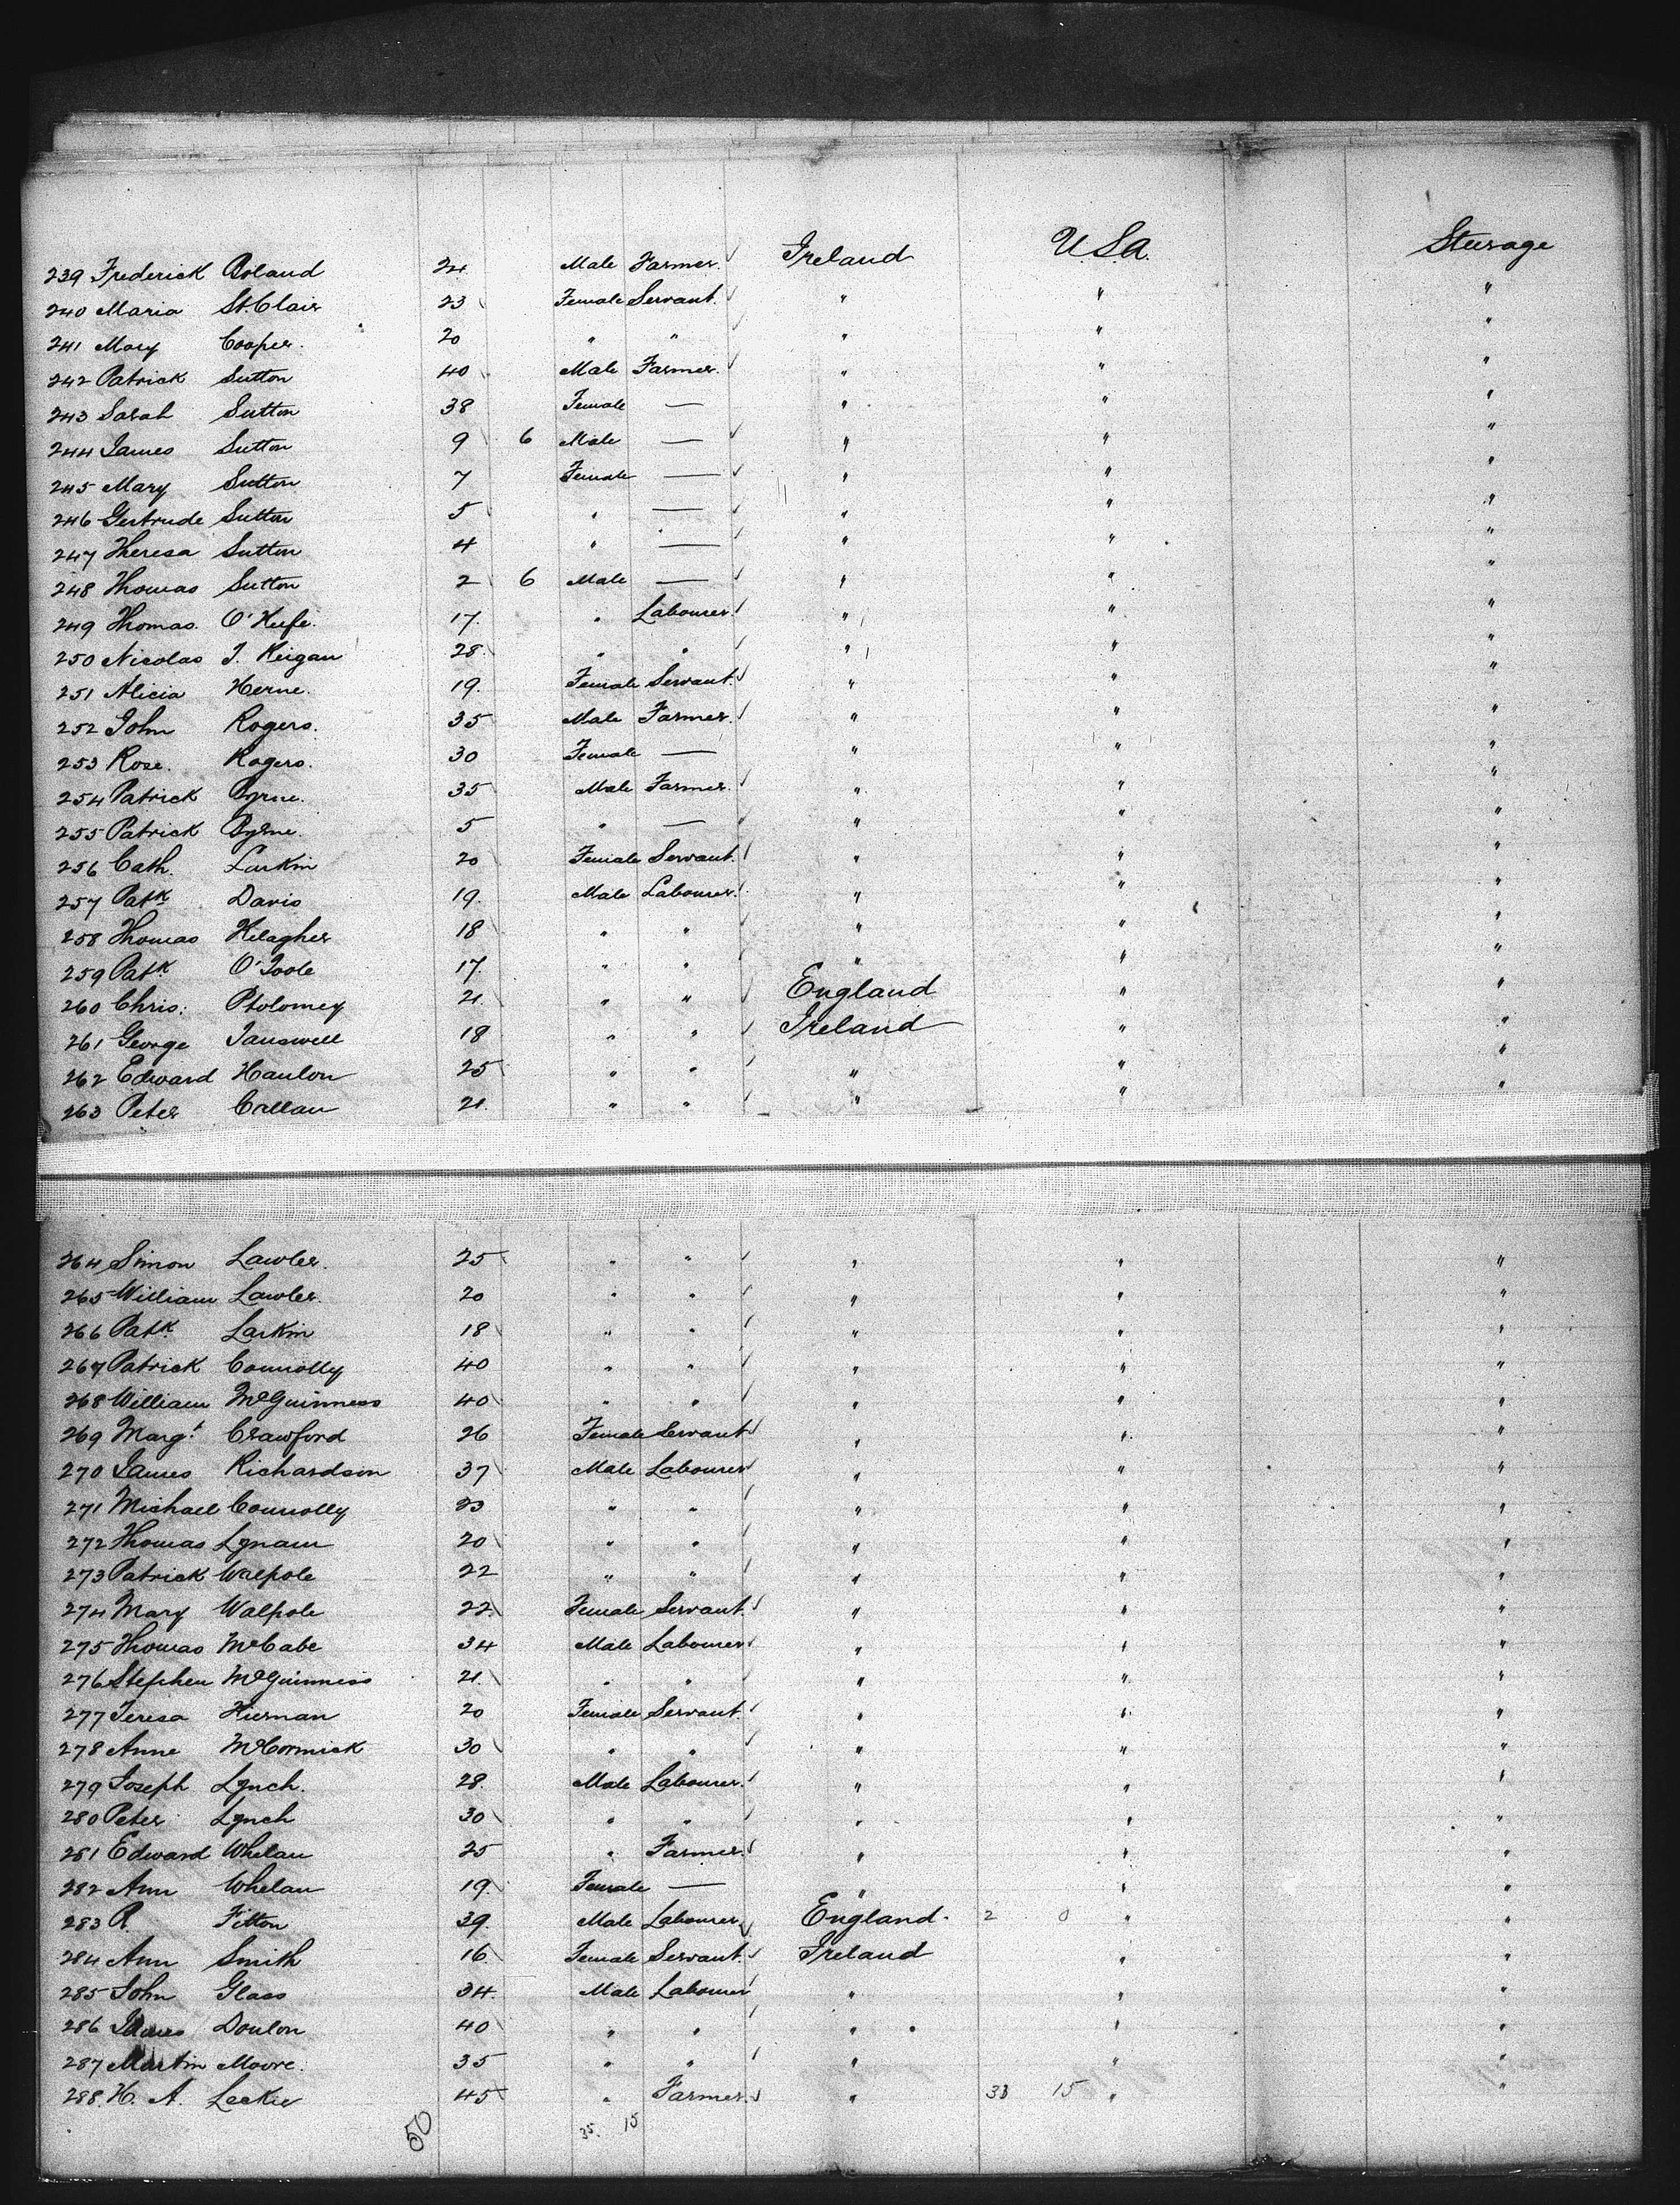 239 Frederick Boland 24 Male Farmer. Ireland U.S.A. Steerage
240 Maria St. Clair 23 Female Servant. " " "
241 Mary Cooper. 20 " " " " "
242 Patrick Sutton 40 Male Farmer. " " "
243 Sarah Sutton 38 Female — " " "
244 James Sutton 9 6 Male — " " "
245 Mary Sutton 7 Female — " " "
246 Gertrude Sutton 5 " — " " "
247 Theresa Sutton 4 " — " " "
248 Thomas Sutton 2 6 Male — " " "
249 Thomas. O'Keefe. 17. " Labourer. " " "
250 Nicolas J. Keigan 28. " " " " "
251 Alicia Herne. 19. Female Servant. " " "
252 John Rogers. 35 Male Farmer. " " "
253 Rose. Rogers. 30 Female — " " "
254 Patrick Byrne. 35 Male Farmer. " " "
255 Patrick Byrne. 5 " — " " "
256 Cath. Larkin 20 Female Servant. " " "
257 Patk Davis 19. Male Labourer. " " "
258 Thomas Kelagher 18 " " " " "
259 Patk O'Toole 17. " " " " "
260 Chris: Ptolomey 21. " " England " "
261 George Tanswell 18 " " Ireland " "
262 Edward Hanlon 25 " " " " "
263 Peter Callan 21. " " " " "
264 Simon Lawler. 25 " " " " "
265 William Lawler. 20 " " " " "
266 Patk Larkin 18 " " " " "
267 Patrick Connolly 40 " " " " "
268 William McGuinness 40 " " " " "
269 Margt Crawford 26 Female Servant " " "
270 James Richardson 37 Male Labourer " " "
271 Michael Connolly 23 " " " " "
272 Thomas Lynam 20 " " " " "
273 Patrick Walpole 22 " " " " "
274 Mary Walpole 22. Female Servant. " " "
275 Thomas McCabe 34 Male Labourer " " "
276 Stephen McGuinness 21. " " " " "
277 Teresa Kiernan 20 Female Servant. " " "
278 Anne McCormick 30 " " " " "
279 Joseph Lynch. 28. Male Labourer. " " "
280 Peter Lynch 30 " " " " "
281 Edward Whelan 25 " Farmer. " " "
282 Ann Whelan 19. Female — " " "
283 R. Fitton 39. Male Labourer England. 2 0 " "
284 Ann Smith 16. Female Servant. Ireland " "
285 John Glass 34. Male Labourer " " "
286 James Donlon 40 " " " " "
287 Martin Moore. 35 " " " " "
288. H. A. Leckie 45 " Farmer. " 33 15 " "
50 35. 15